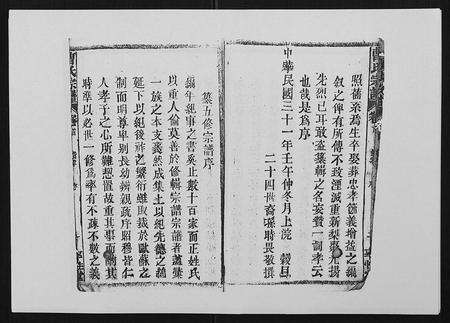 照舊系為生卒娶葬忠孝節義增益之編
敘之俾有所傳不致湮滅重新梨棗光揚
先烈已耳敢盡纂輯之名妄贊一詞孝云
也哉是為序
中華民國三十一年壬午仲冬月上浣 穀旦
二十四世裔孫時畏敬撰
纂五修宗譜序
編年紀事之書奚止數十百家而正姓氏
以重人倫莫善於修輯宗譜宗譜者薈集
一族之本支裒然成集上以紀先德之緒
延下以紀後祚之繁衍雖取裁於歐蘇之
制而明尊卑別長幼辨親疏序昭穆皆仁
人孝子之心所難恝置故重其事而簡其
時準以必世一修為率有不疎不數之義